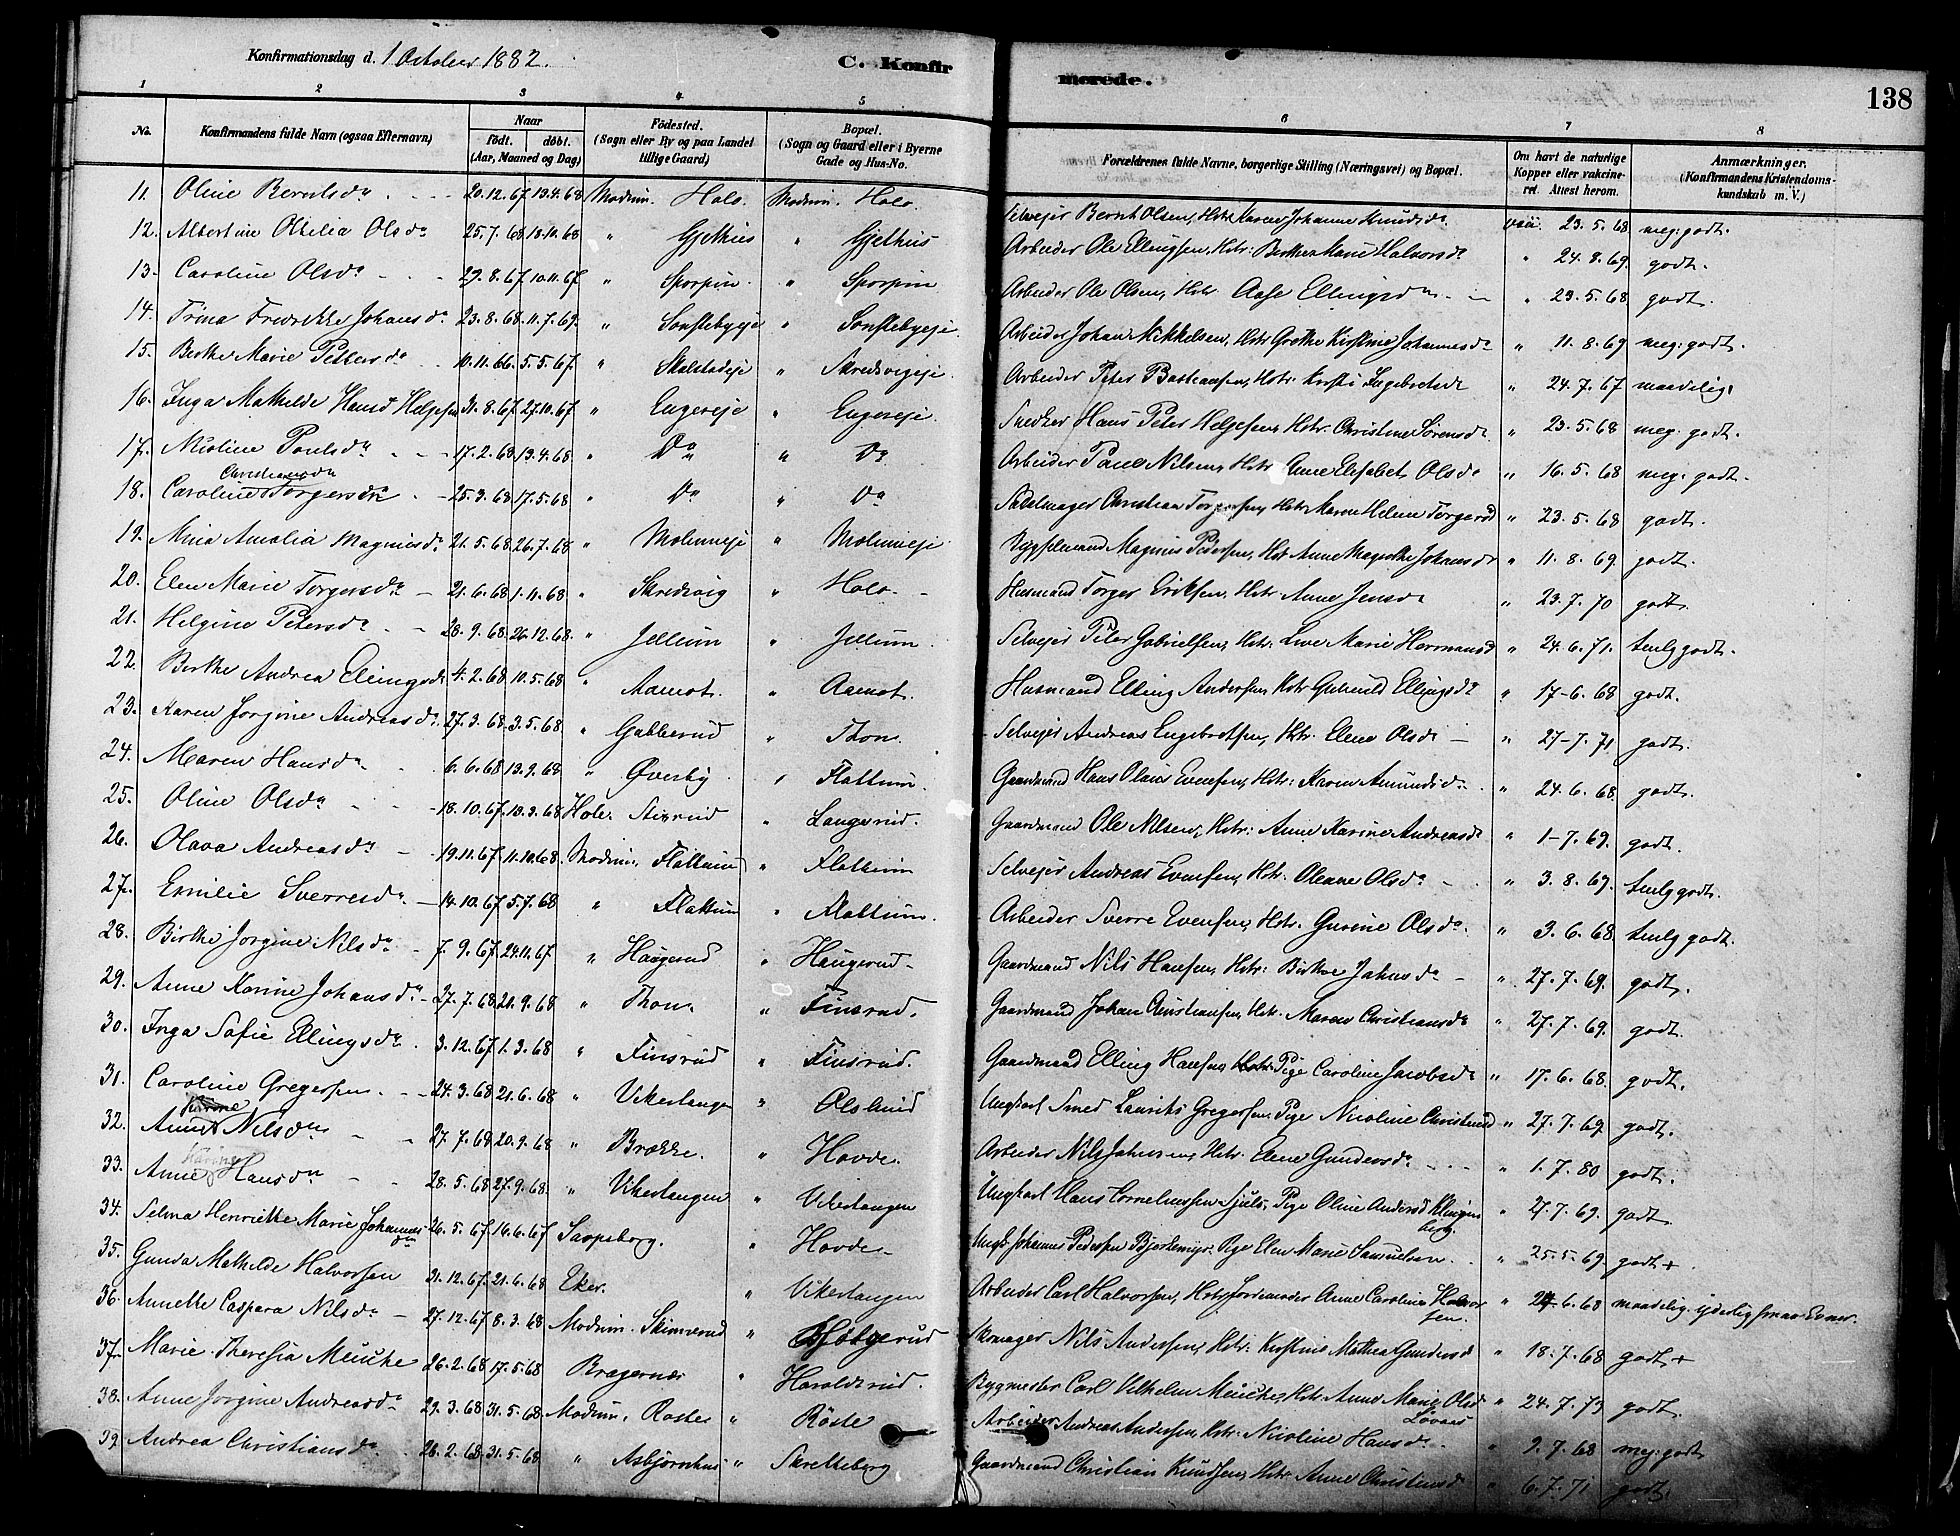 Konfirmationsdag d. 1 October 1882. C. Konfirmerede. 138
1 2 3 4 5 6 7 8
No. Konfirmandens fulde Navn (ogsaa Efternavn) Naar Födt. döbt. (Aar, Maaned og Dag) Födested. (Sogn eller By og paa Landet tillige Gaard) Bopæl. (Sogn og Gaard eller i Byerne Gade og Hus-No. Forældrenes fulde Navne, borgerlige Stilling (Næringsvei) og Bopæl. Om havt de naturlige Kopper eller vaccineret. Attest herom. Anmærkninger. (Konfirmandens Kristendomskundskab m. V.)
11. Oline Berntsda 20.12.67. 19.4.68 Modum. Hals. Modum. Hals. Selveier Bernt Olsen, Hstr. Karen Johanne Knudsda 23.5.68 meg: godt.
12. Albertine Othilia Olsda 25.7.68 18.10.68 " Gjethus " Gjethus Arbeider Ole Ellingsen, Hstr: Berthe Marie Halvorsda " 24.8.69. godt.
13. Caroline Olsda 29.8.67. 10.11.67 " " Arbeider Ole Olsen, Hstr. Aase Ellingsda " 23.5.68 godt.
14. Trina Fredrikke Johansda 23.8.68. 11.7.69. " Sonstebyeje " Sonstebyeje Arbeider Johan Mikkelsen, Hstr Grethe Kirstine Johannesda " 11.8.69 meg: godt.
15. Berthe Marie Pettersda 10.11.66. 5.5.67. " Skalstadeje " Skredsvigeje. Arbeider Peter Bastiansen, Hstr. Kirsti Ingebretsda " 24.7.67 maadelig.
16. Inga Mathilde Hansd Helgesen 31.8.67. 27.10.67 " Engereje " Engereje. Snedker Hans Peter Helgesen, Hstr. Christine Sørensda " 23.5.68 meg: godt.
17. Nicoline Paulsda 17.2.68. 19.4.68 " Do " Do Arbeider Paul Nilsen, Hstr. Anne Elisabet Olsda " 16.5.68 meg: godt.
18. Caroline Christiansda Torgersda 25.3.68 17.5.68 " Do " Do Sadelmager Christian Torgersen, Hstr. Karen Helene Torgersd " 23.5.68 godt.
19. Mina Amalia Magnusda 21.5.68. 26.7.68 " " Magnus Pedersen, Hstr Anne Magrethe Johansda " 11.8.69. godt.
20. Elen Marie Torgersda 21.6.68 1.11.68 " Skredsvig " Hals. Husmand Torger Eriksen, Hstr Anne Jensda " 23.7.70 godt.
21. Helgine Petersda 28.9.68. 26.12.68. " Jellum " Jellum. Selveier Peter Gabrielsen, Hstr: Live Marie Hermansd " 24.6.71. temlg godt.
22. Berthe Andrea Ellingsda 4.2.68 10.5.68 " Aamot. " Aamot. Husmand Elling Andersen, Hstr Gunhild Ellingsda " 17-6.68 godt.
23. Karen Jorgine Andreasda 27.3.68. 3.5.68 " Gabberud " Thon. Selveier Andreas Engebretsen, Hstr. Elene Olsda " 27-7.71 godt.
24. Maren Hansda 6.6.68 13.9.68 " Øverby " Flattum. Gaardmand Hans Olaus Evensen, Hstr: Karen Amundsda " 24.6.68. godt.
25. Oline Olsda 18.10.67. 13.3.68 Hole. " Langerud. Gaardmand Ole Nilsen, Hstr: Anne Karine Andreasda " 1-7.69. godt.
26. Olava Andreasda 19.11.67. 11.10.68. Modum. Flattum " Flattum Selveier Andreas Evensen, Hstr. Oleane Olsda " 3.8.69. temlg godt.
27. Emilie Sverresda 14.10.67 5.7.68 " Flattum " Flattum. Arbeider Sverre Evensen, Hstr. Gurine Olsda " 3.6.68. temlg godt.
28. Birthe Jorgine Nilsda 7.9.67. 24.11.67 " Haugerud " Haugerud Gaardmand Nils Hansen, Hstr: Birthe Johnsda " 27.7.69. godt.
29. Anne Karine Johansda 27.7.68 20.9.68 " Thon. " Finsrud. Gaardmand Johan Christiansen, Hstr. Maren Christiansda " 27.7.69. godt.
30. Inga Sofie Ellingsda 3.12.67 1.3.68 " Finsrud " Finsrud. Gaardmand Elling Hansen, Pige Caroline Jacobsda " 17.6.68. godt.
31. Caroline Gregersen 24.3.68 21.6.68 " Vikerlangen " Ungkarl Smed Laurits Gregersen, Pige Nicoline Christensd " 27.7.69. godt.
32. Anne Karine Nilsda 27.7.68 20.9.68 " Brække. " Hovde. Arbeider Nils Johnsen, Hstr. Elene Gundersda " 1.7.80 godt.
33. Anne Hansda 28.5.68 27.9.68. " Vikerlangen " Vikerlangen Ungkarl Hans Corneliussen Pige Oline Andersd Klingenberg. " 27.7.69. godt.
34. Selma Henriette Marie Johannesda 26.5.67 16.6.67 Sarpsborg. " Hovde. Ungk. Johannes Pedersen Pige Elen Marie Samuelsen. " 25.5.69. godt +
35. Gunda Mathilde Halvorsen 21.12.67. 21.6.68 Eker. " Vikerlangen Arbeider Carl Halvorsen, Hstr. Jordemoder Anne Caroline Halvorsen. " 24.6.68 maadelig.
36. Annette Caspara Nilsda 27.12.67 8.3.68 Modum. Skinnerud " Skomager Nils Andersen, Hstr: Kirstine Mathea Gundersd " 18.7.68 godt +
37. Marie Theresia Meucke 26.2.68 17.5.68 Bragernæs " Haraldsrud. Bygmester Carl Vilhelm Meucke, Hstr. Anne Marie Olsd Løvaas " 24.7.73 godt.
38. Anne Jorgine Andreasda 29.3.68 31.5.68 Modum. Roste " Röste Arbeider Andreas Andersen, Hstr: Nicoline Hansda " 9.7.68 meg: godt
39 Andrea Christiansda 26.2.68 31.5.68 " Asbjørnhus " Skretteberg Gaardmand Christian Knudsen, Hstr Anne Christensd " 6.7.71 godt.